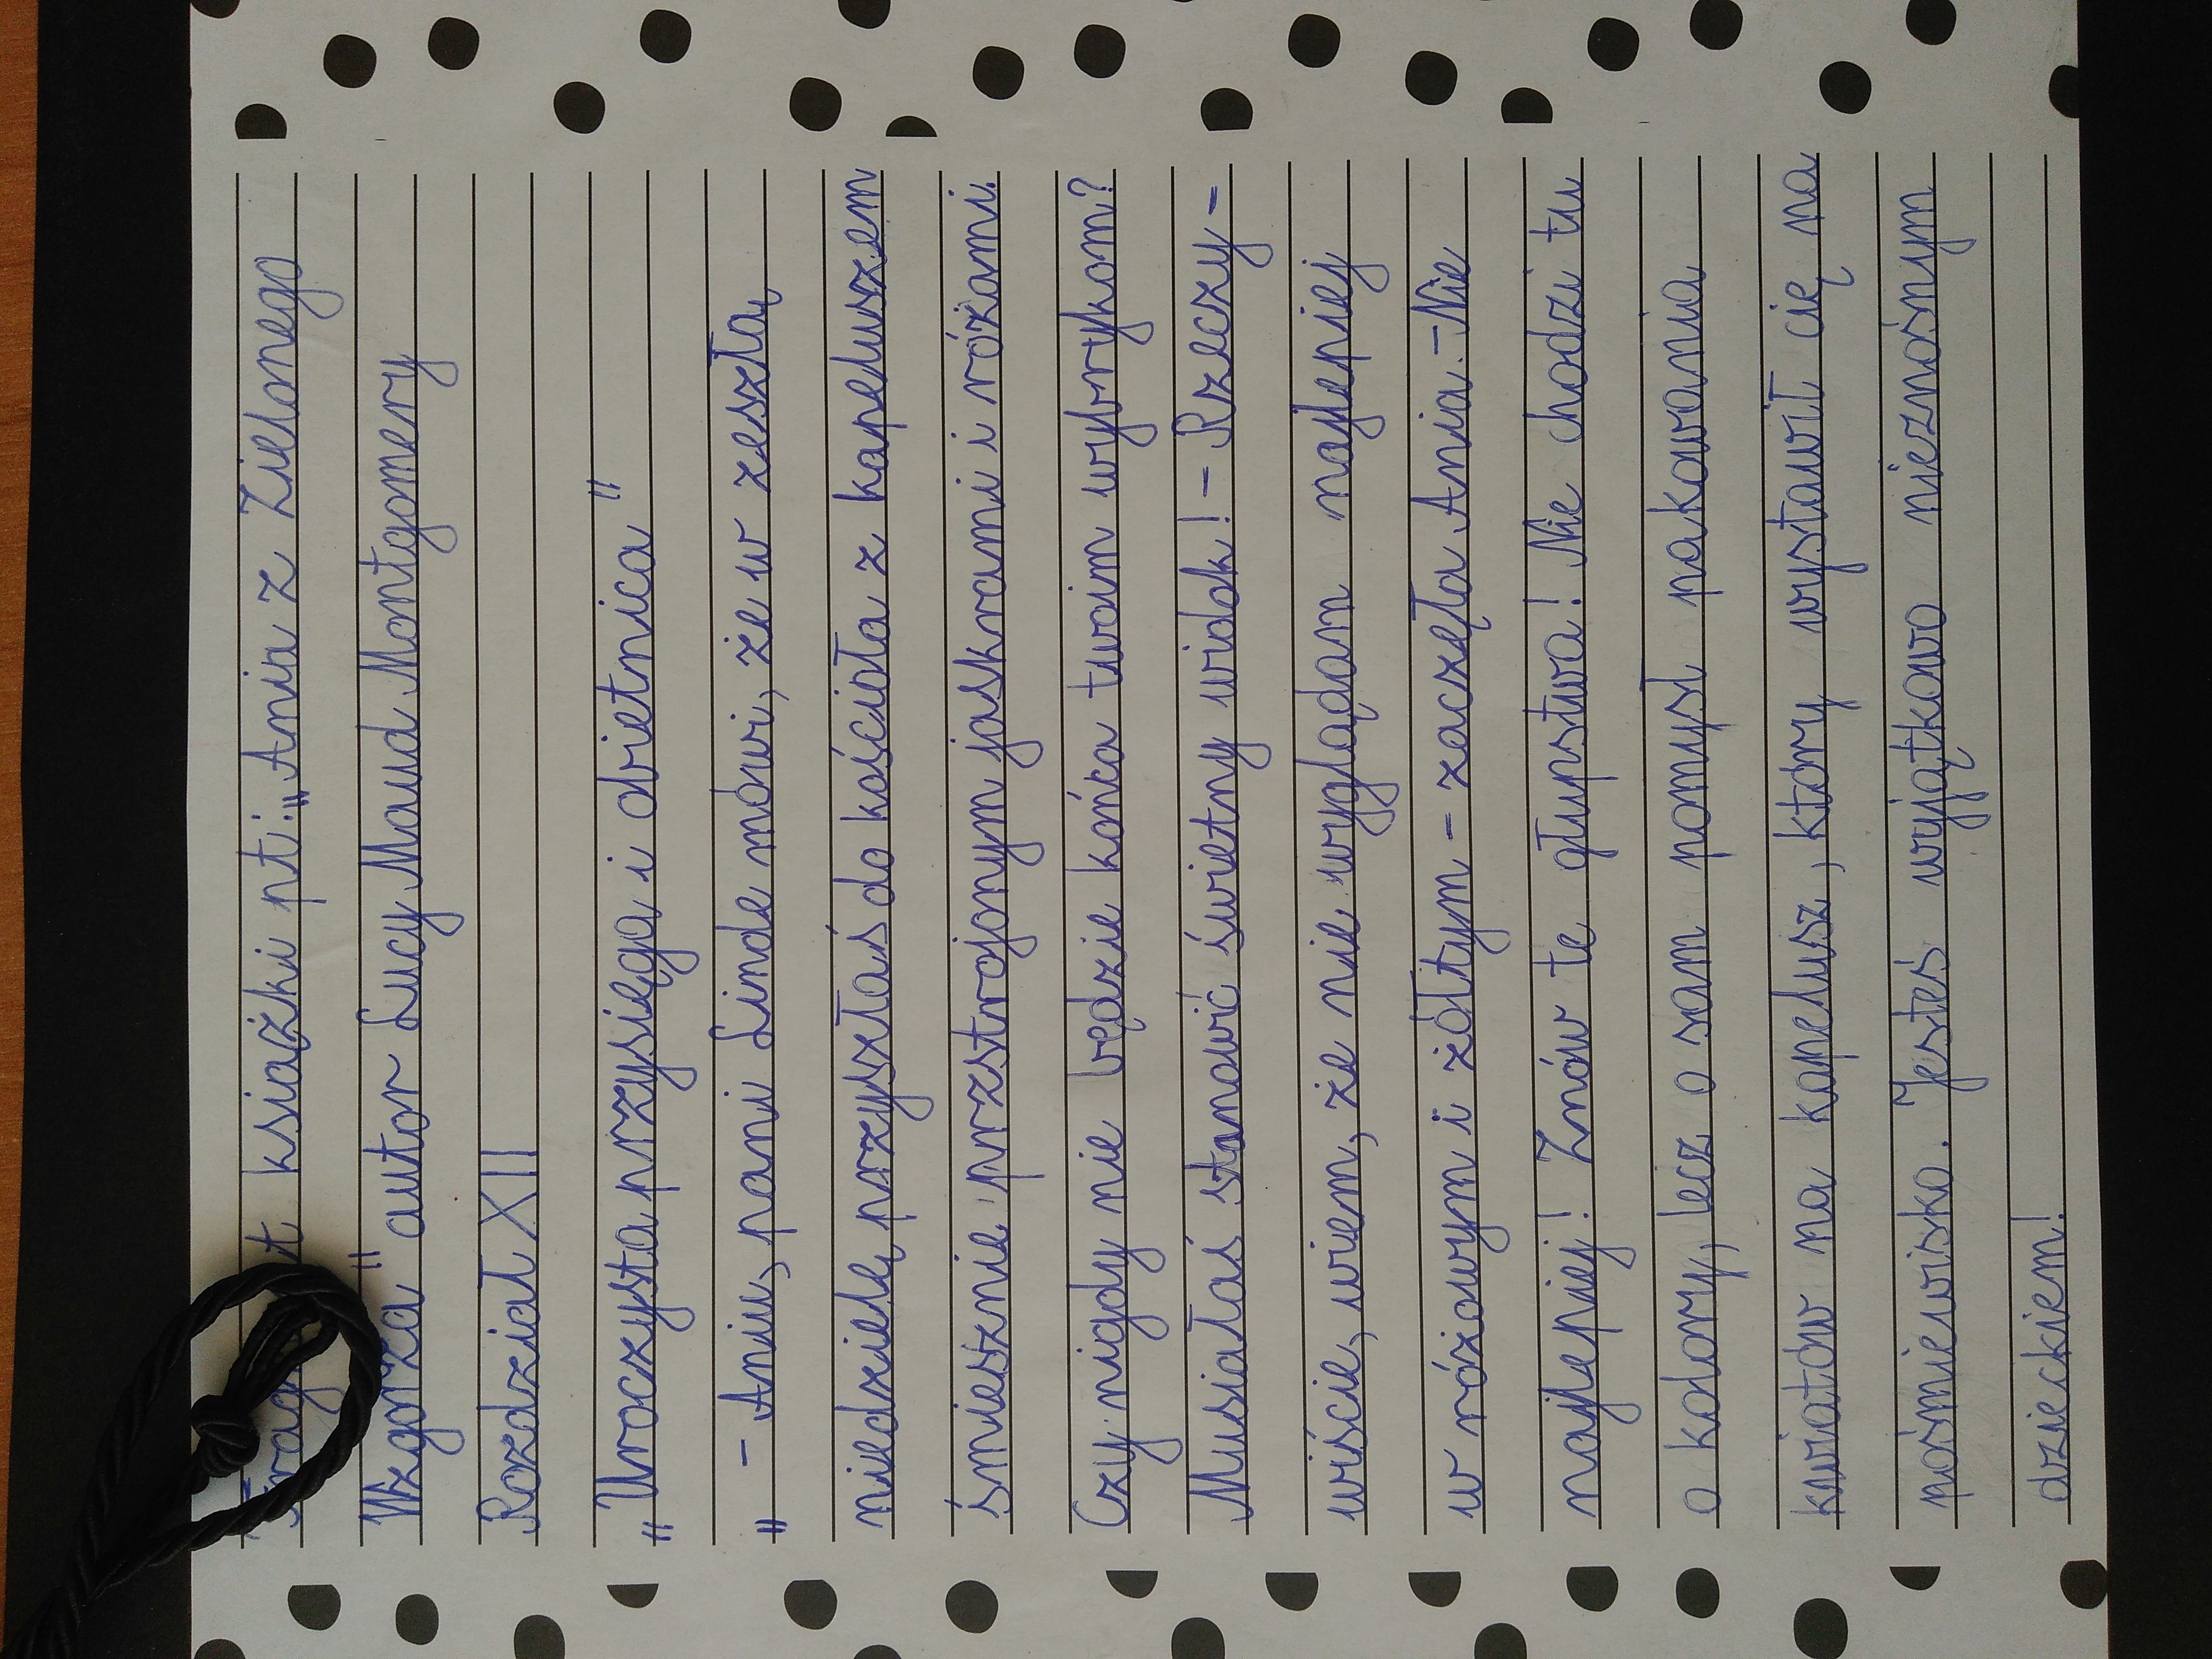 książki pt.: „Ania z Zielonego
Wzgórza" autor Lucy Maud Montgomery
Rozdział XII
„Uroczysta przysięga i obietnica"
„ - Aniu, pani Linde mówi, że w zeszłą
niedzielę przyszłaś do kościoła z kapeluszem
śmiesznie przstrojonym jaskrami i różami.
Czy nigdy nie będzie końca twoim wybrykom?
Musiałaś stanowić świetny widok! - Rzeczy-
wiście, wiem, że nie wyglądam najlepiej
w różowym i żółtym - zaczęła Ania. - Nie
najlepiej! Znów te głupstwa! Nie chodzi tu
o kolory, lecz o sam pomysł pakowania
kwiatów na kapelusz, który wystawił cię na
pośmiewisko. Jesteś wyjątkowo nieznośnym
dzieckiem!